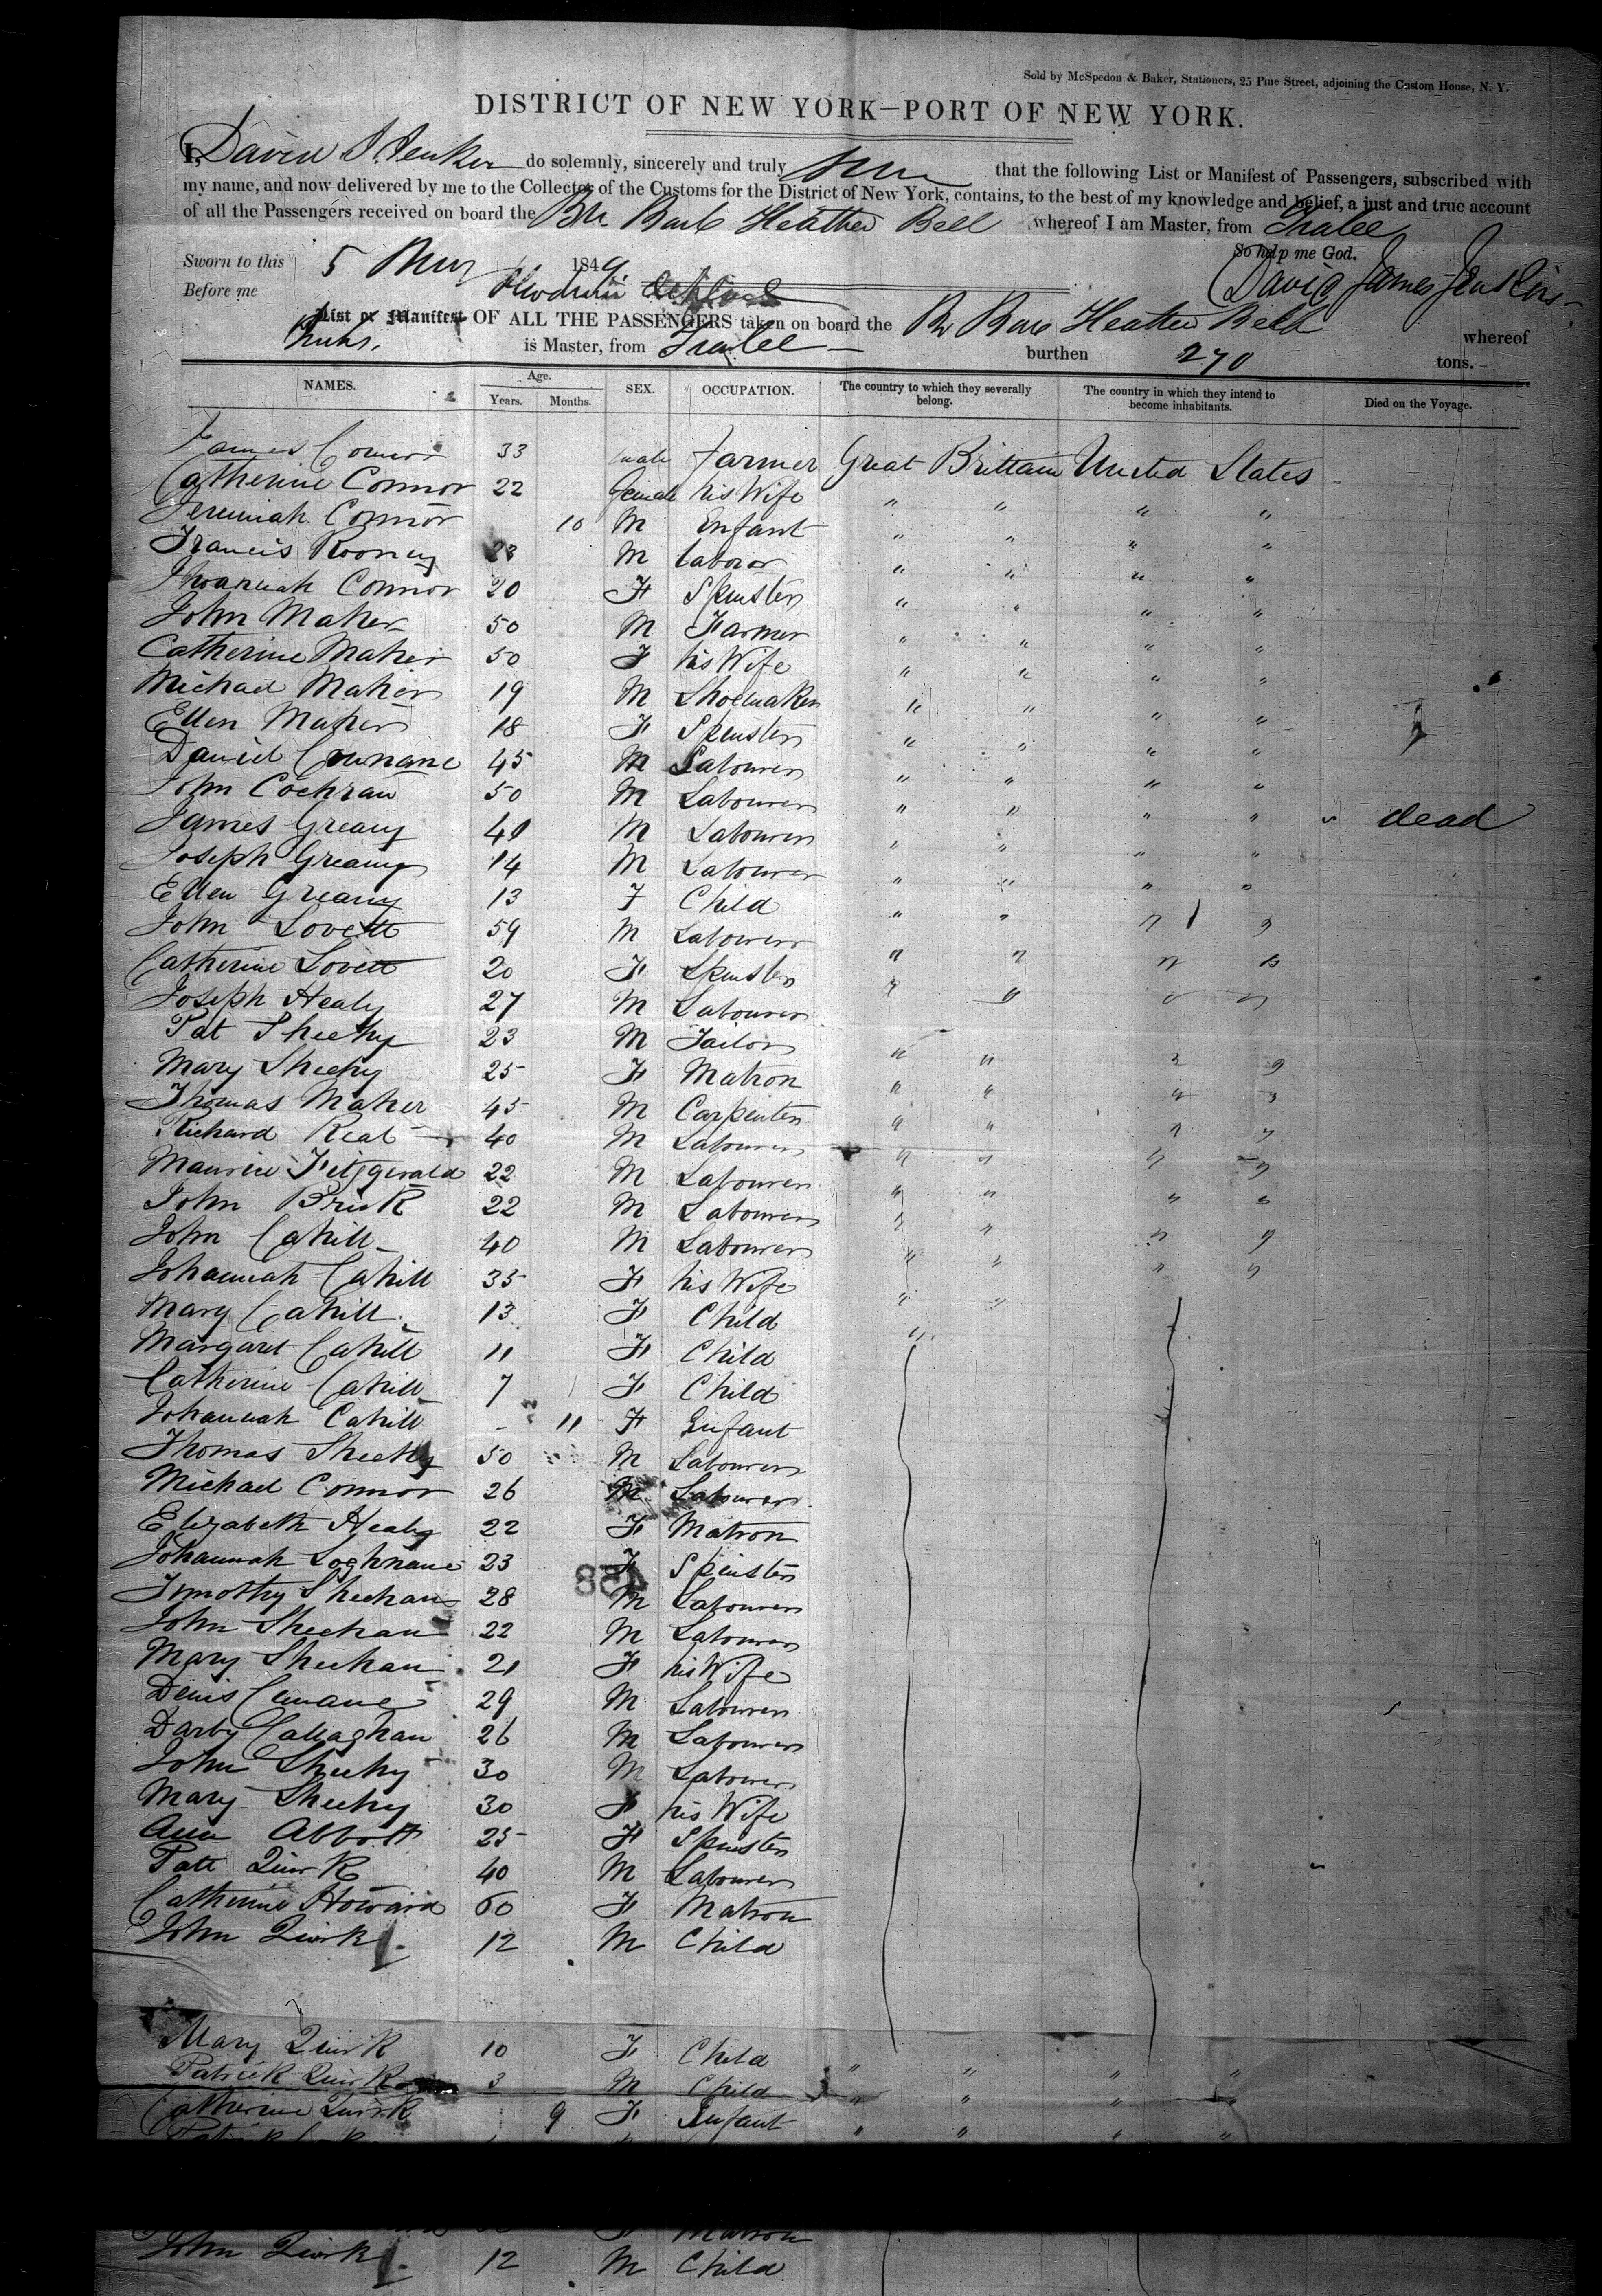 Sold by McSpedon & Baker, Stationers, 25 Pine Street, adjoining the Custom House, N. Y.
DISTRICT OF NEW YORK—PORT OF NEW YORK.
I, David J. do solemnly, sincerely and truly that the following List or Manifest of Passengers, subscribed with
my name, and now delivered by me to the Collector of the Customs for the District of New York, contains, to the best of my knowledge and belief, a just and true account
of all the Passengers received on board the Br. Bark Heather Bell whereof I am Master, from Tralee
So help me God.
Sworn to this 5 May 1849 David James Jenkins
Before me
List or Manifest OF ALL THE PASSENGERS taken on board the Br Barc Heather Bell whereof
is Master, from Tralee burthen 270 tons.
NAMES. Age. Years. Months. SEX. OCCUPATION. The country to which they severally belong. The country in which they intend to become inhabitants. Died on the Voyage.
James Connor 33 male farmer Great Brittain United States
Catherine Connor 22 female his Wife " " " "
Jeremiah Connor 10 M Enfant " " " "
Francis Rooney 23 M laboror " " " "
Connor 20 F Spinster " " " "
John Maher 50 M Farmer " " " "
Catherine Maher 50 F his Wife " " " "
Michael Maher 19 M Shoemaker " " " "
Ellen Maher 18 F Spinster " " " "
Daniel 45 M Labourer " " " "
John Cochran 50 M Labourer " " " " dead
James Greany 40 M Labourer " " " "
Joseph Greany 14 M Labourer " " " "
Ellen Greany 13 F Child " " " "
John Lovett 59 M Labourer " " " "
Catherine Lovett 20 F Spinster " " " "
Joseph Healy 27 M Labourer
Pat Sheehy 23 M Tailor " " " "
Mary Sheehy 25 F Matron " " " "
Thomas Maher 45 M Carpenter " " " "
Richard Real 40 M Labourer " " " "
Maurice Fitzgerald 22 M Labourer " " " "
John Brick 22 M Labourer " " " "
John Cahill 40 M Labourer " " " "
Johannah Cahill 35 F his Wife " "
Mary Cahill 13 F Child "
Margaret Cahill 11 F Child
Catherine Cahill 7 F Child
Johannah Cahill - 11 F Enfant
Thomas Sheehy 50 M Labourer
Michael Connor 26 M Labourer
Elizabeth Healy 22 F Matron
Johannah Loghnane 23 F Spinster
Timothy Sheehan 28 M Labourer
John Sheehan 22 M Labourer
Mary Sheehan 21 F his Wife
Denis Cunane 29 M Labourer
Darby Callaghan 26 M Labourer
John Sheehy 30 M Labourer
Mary Sheehy 30 F his Wife
Ann Abbott 25 F Spinster
Patt Quirk 40 M Labourer
Catherine Howard 60 F Matron
John Quirk 12 M Child
Mary Quirk 10 F Child " " " "
Patrick Quirk 3 M Child " " " "
Catherine Quirk 9 F Infant " " " "
Matron
John Quirk 12 M Child